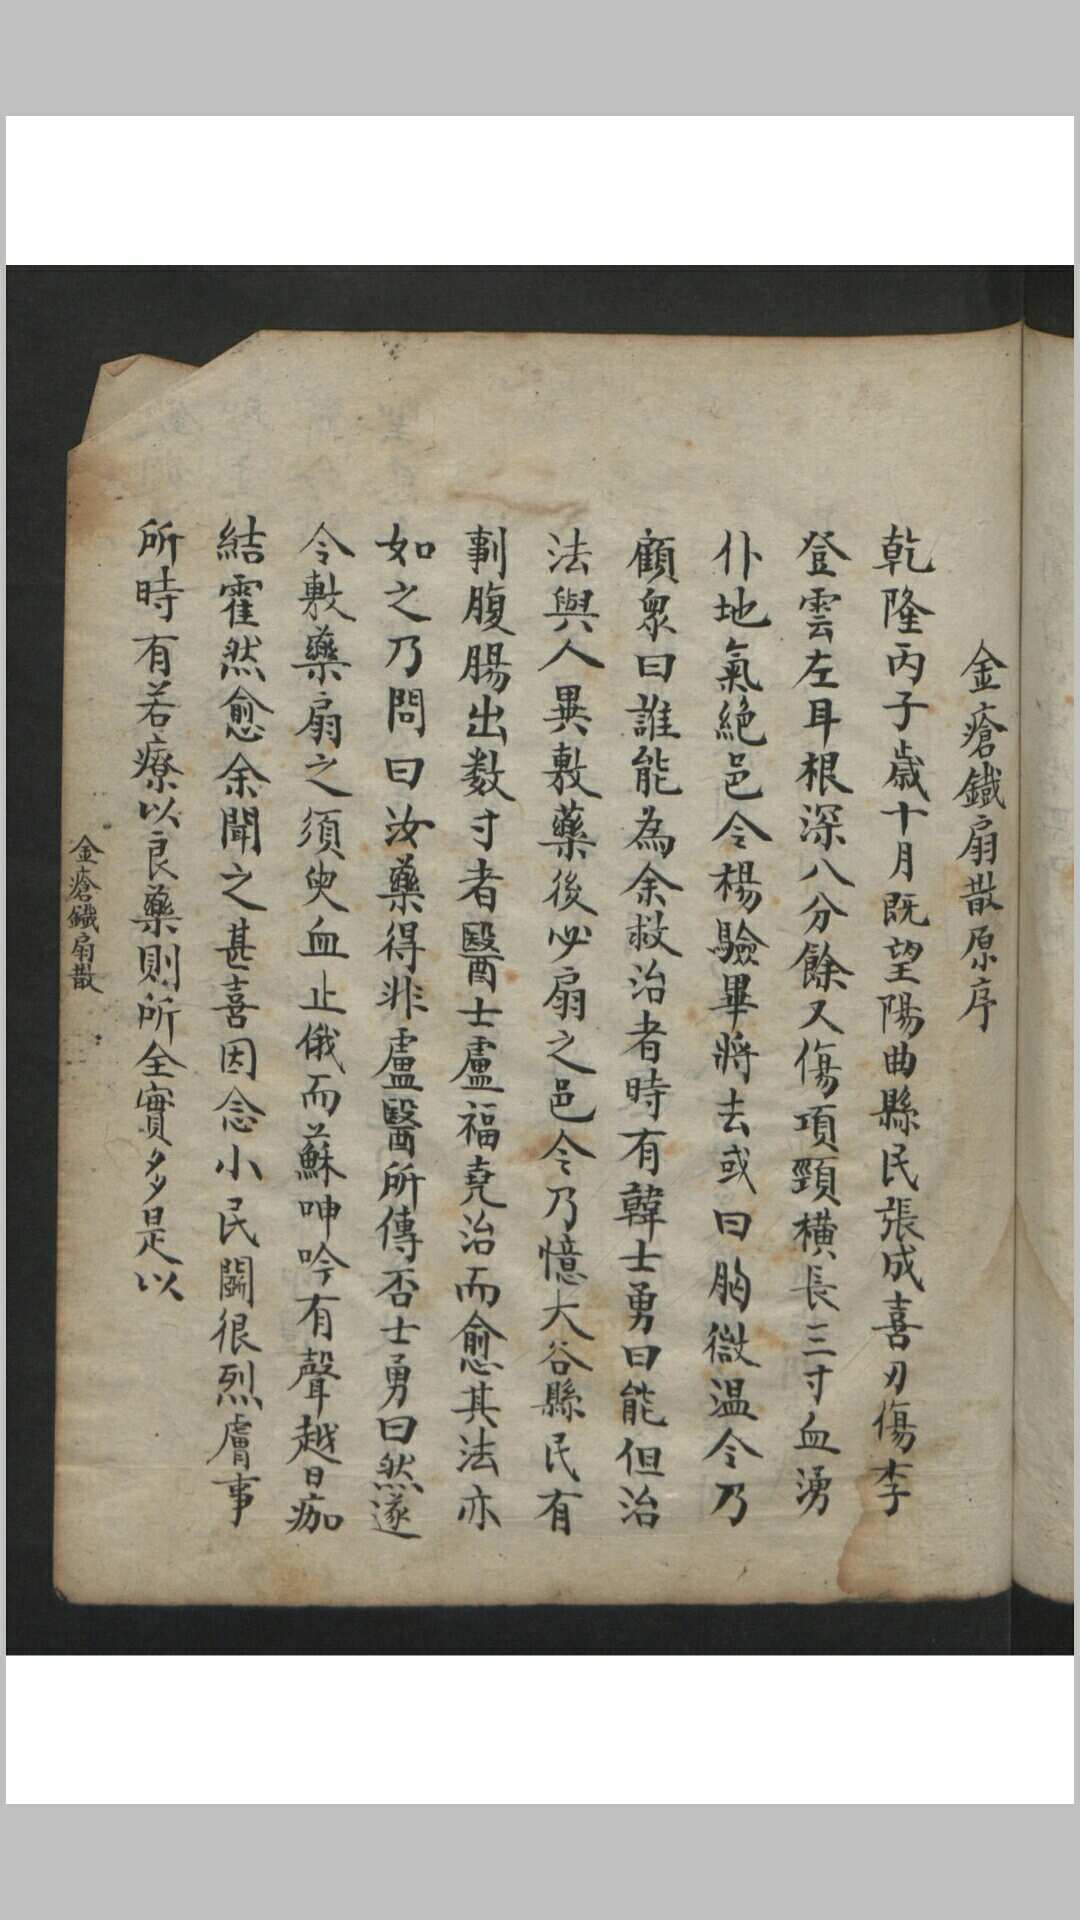 金瘡鐵扇散原序
乾隆丙子歲十月既望陽曲縣民張成喜刃傷李
登雲左耳根深八分餘又傷項頸橫長三寸血湧
仆地氣絶邑令楊驗畢將去或曰胸微温令乃
顧衆曰誰能為余救治者時有韓士勇曰能但治
法與人異敷藥後必扇之邑令乃憶大谷縣民有
剚腹腸出数寸者醫士盧福堯治而愈其法亦
如之乃問曰汝藥得非盧醫所傳否士勇曰然遂
令敷藥扇之須臾血止俄而蘇呻吟有聲越日痂
結霍然愈余聞之甚喜因念小民鬭很烈膚事
所時有若療以良藥則所全實多是以
金瘡鐵扇散